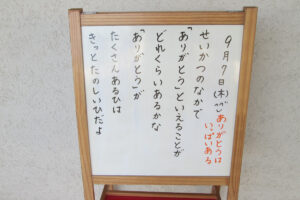 9月7日(木)(ぺ)ありがとうは
いっぱいある
せいかつのなかで
「ありがとう」といえることが
どれくらいあるかな
「ありがとう」が
たくさんあるひは
きっとたのしいひだよ